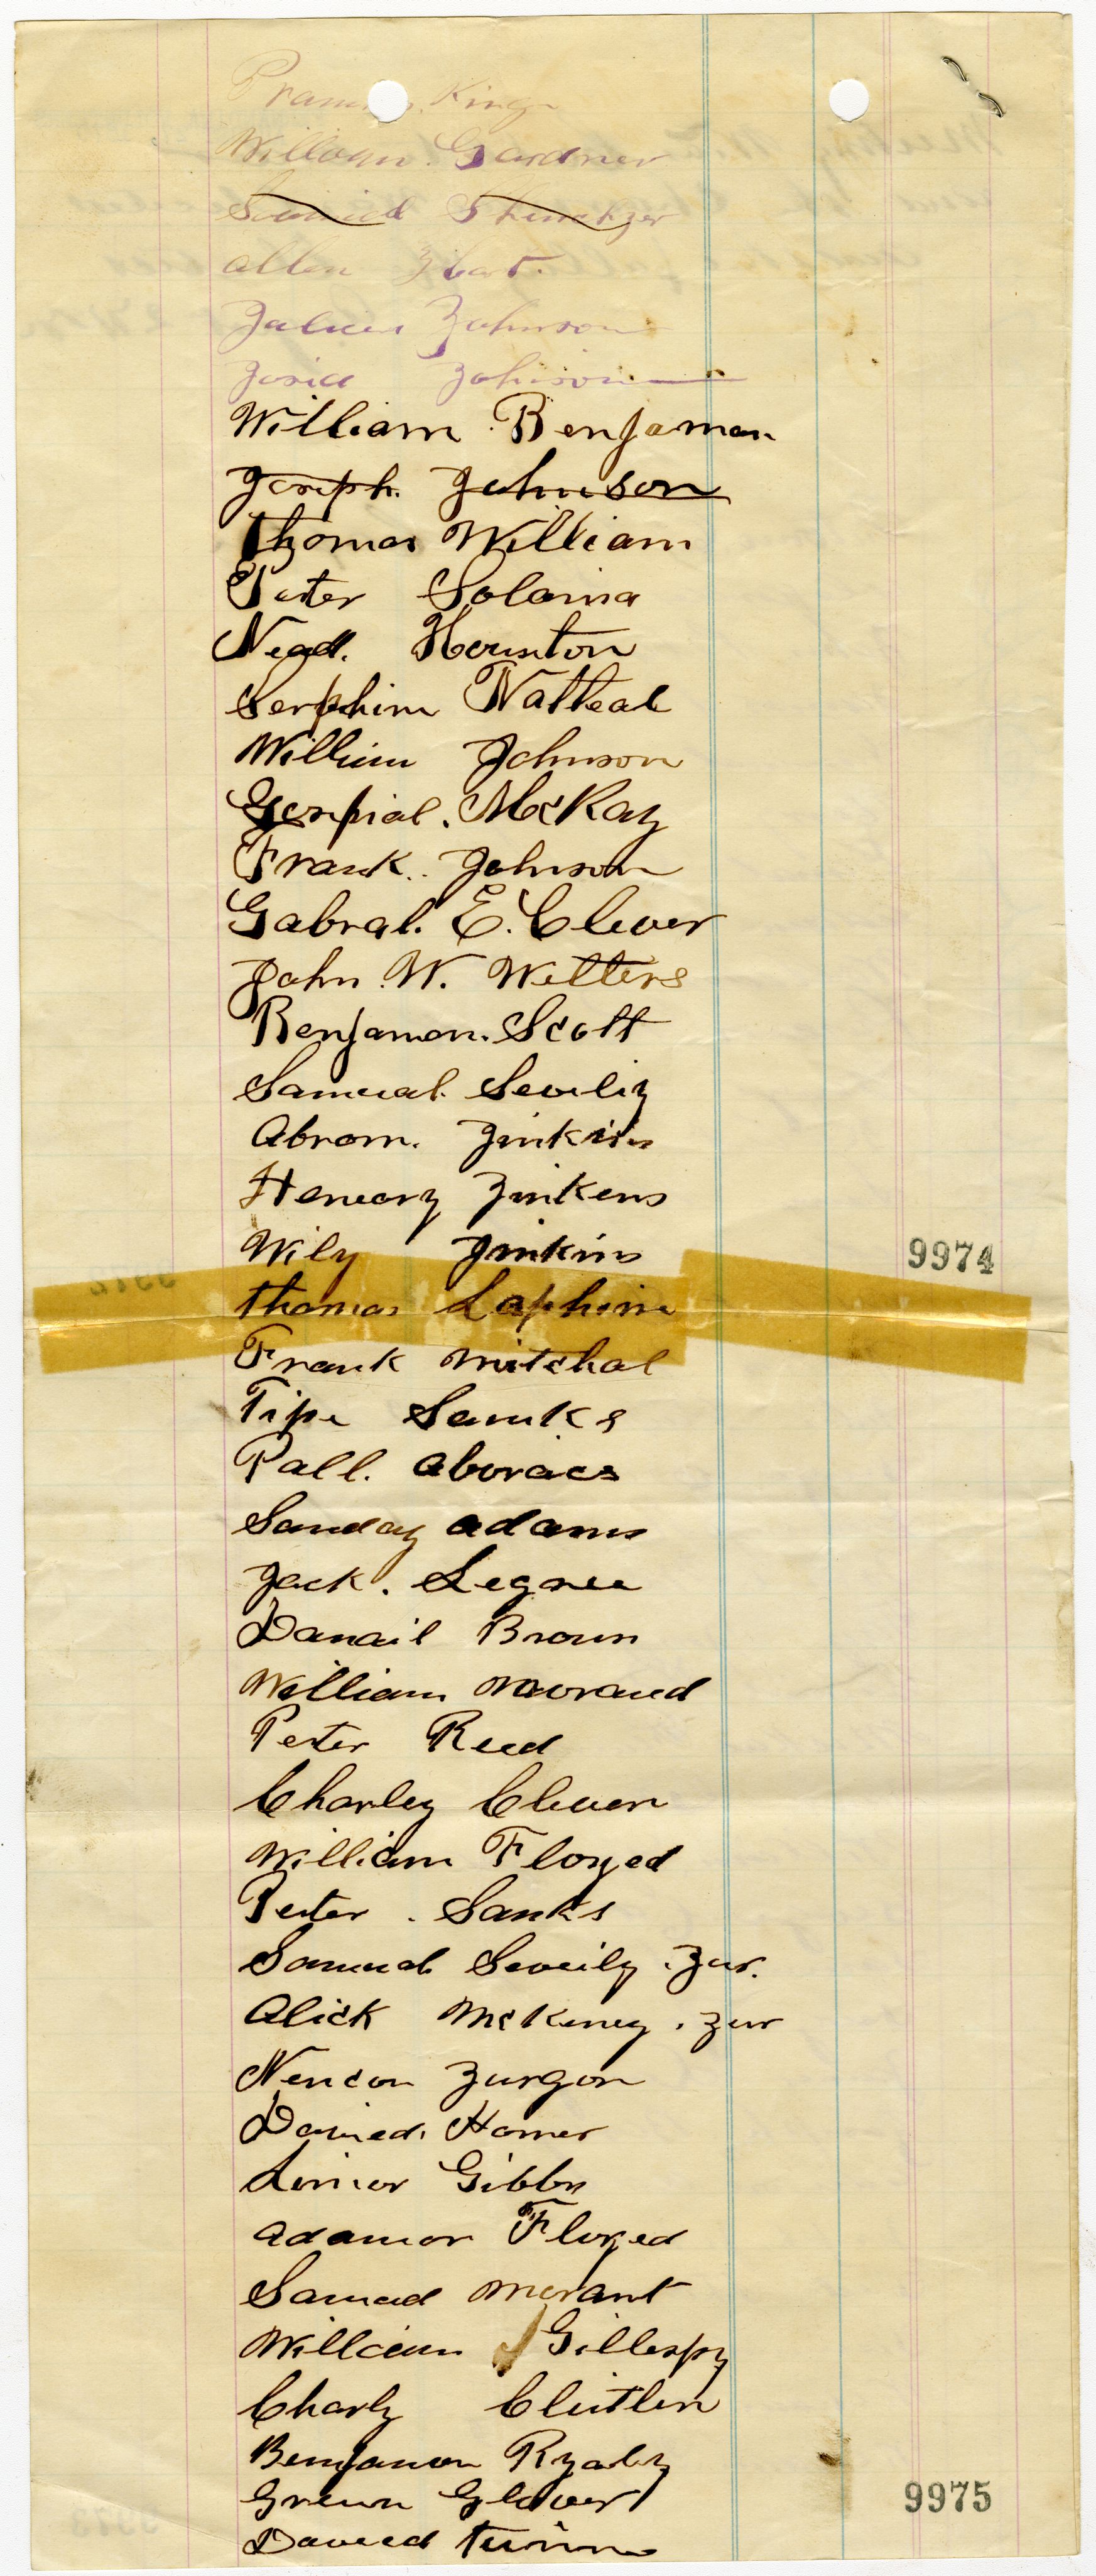 King
William Gardner
Allen
Johnson
Josie Johnson
William Benjaman
Joseph Johnson
Thomas William
Peter Soloma
Nead. Hounton
Serphim Natteal
William Johnson
McKay
Frank Johnson
Gabral. E. Clever
John W. Wetters
Benjamon. Scott
Samual Seveliy
Abrom. Jinkins
Heneary Jinkens
Wily Jinkins
9974
Thomas Laphine
Frank mitchal
Tipe Sanks
Pall. aboraes
Sanday adams
Jack. Legree
Danail Brown
William morand
Peter Reed
Charley Cleven
William Floyed
Peter Sanks
Samual Seveily Jur.
Alick McKiney Jur
Nencon Jurgon
Homer
Gibbs
adamor Floyed
Samuel morant
William Gillespy
Charly
Benjamon Ryaly
Green Glover
9975
Daveed